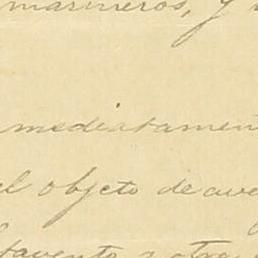 marineros, y
mediatamen
el objeto de ave
favento a otra